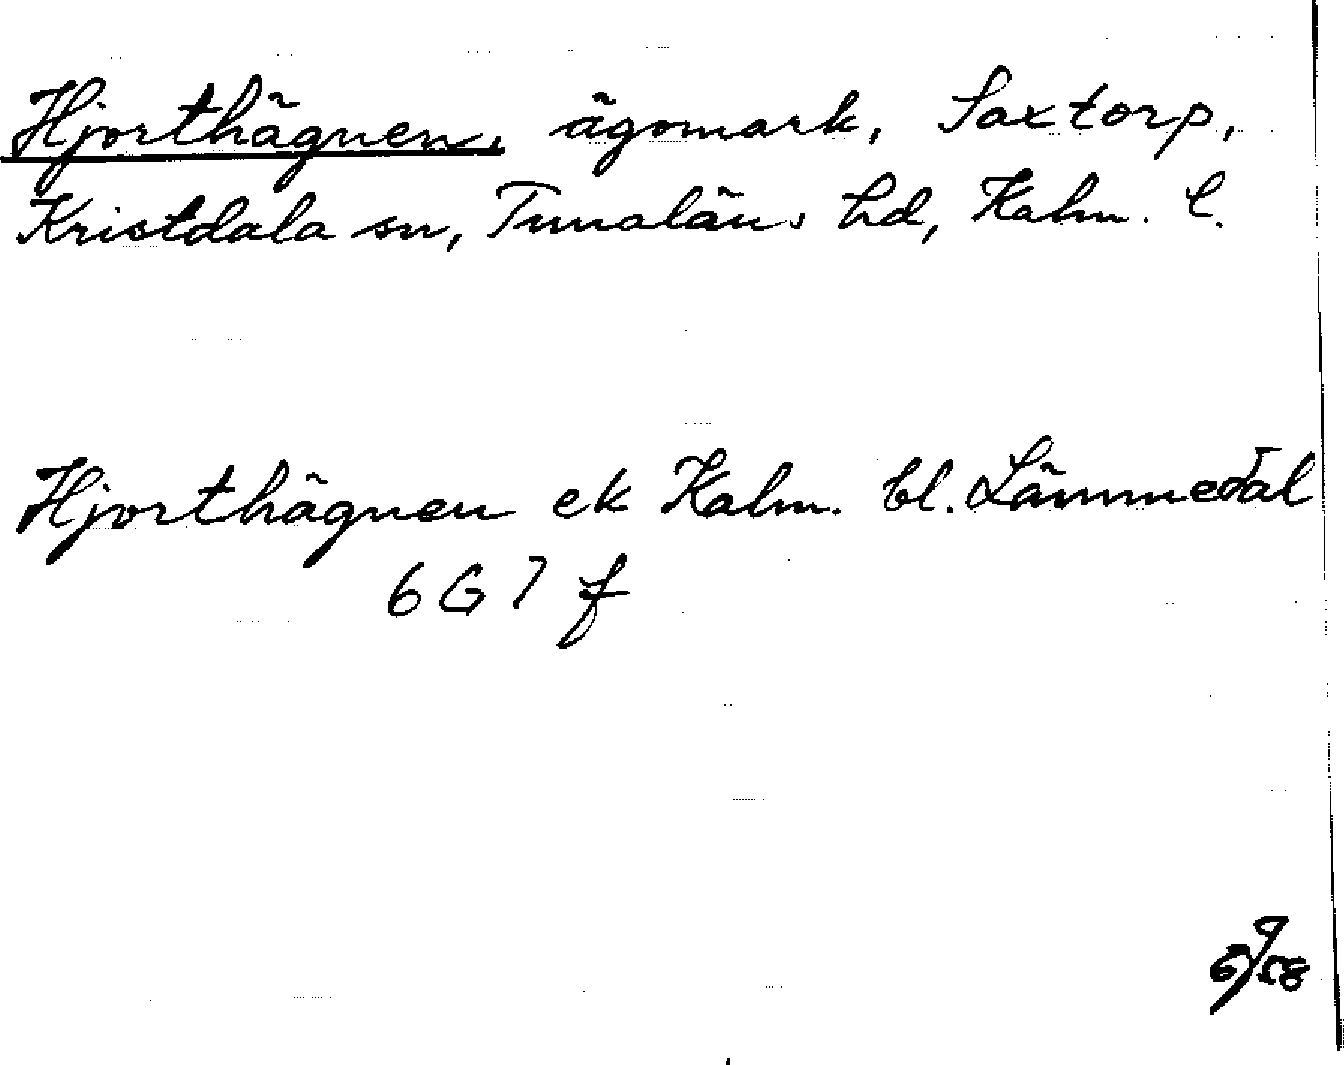 Hjorthägnen, ägomark, Saxtorp,
Kristdala sn, Tunaläns hd, Kalm. l.
Hjorthägnen ek Kalm. bl. Lämmedal
6 G 7 f